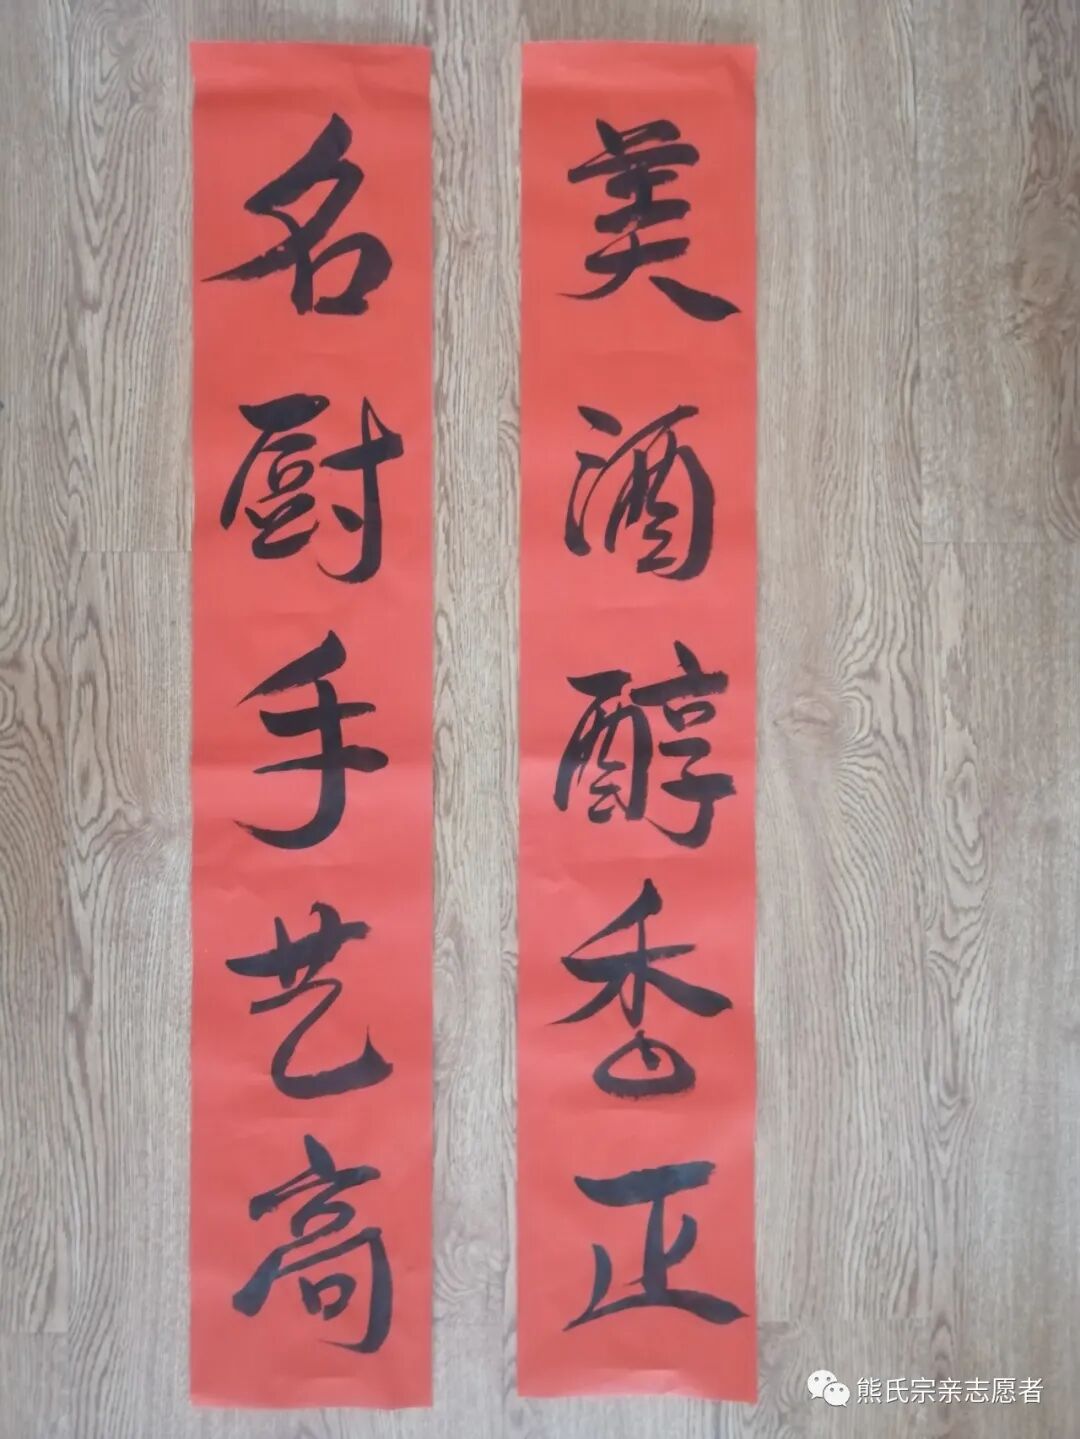 美酒醇香正
名厨手艺高
熊氏宗亲志愿者